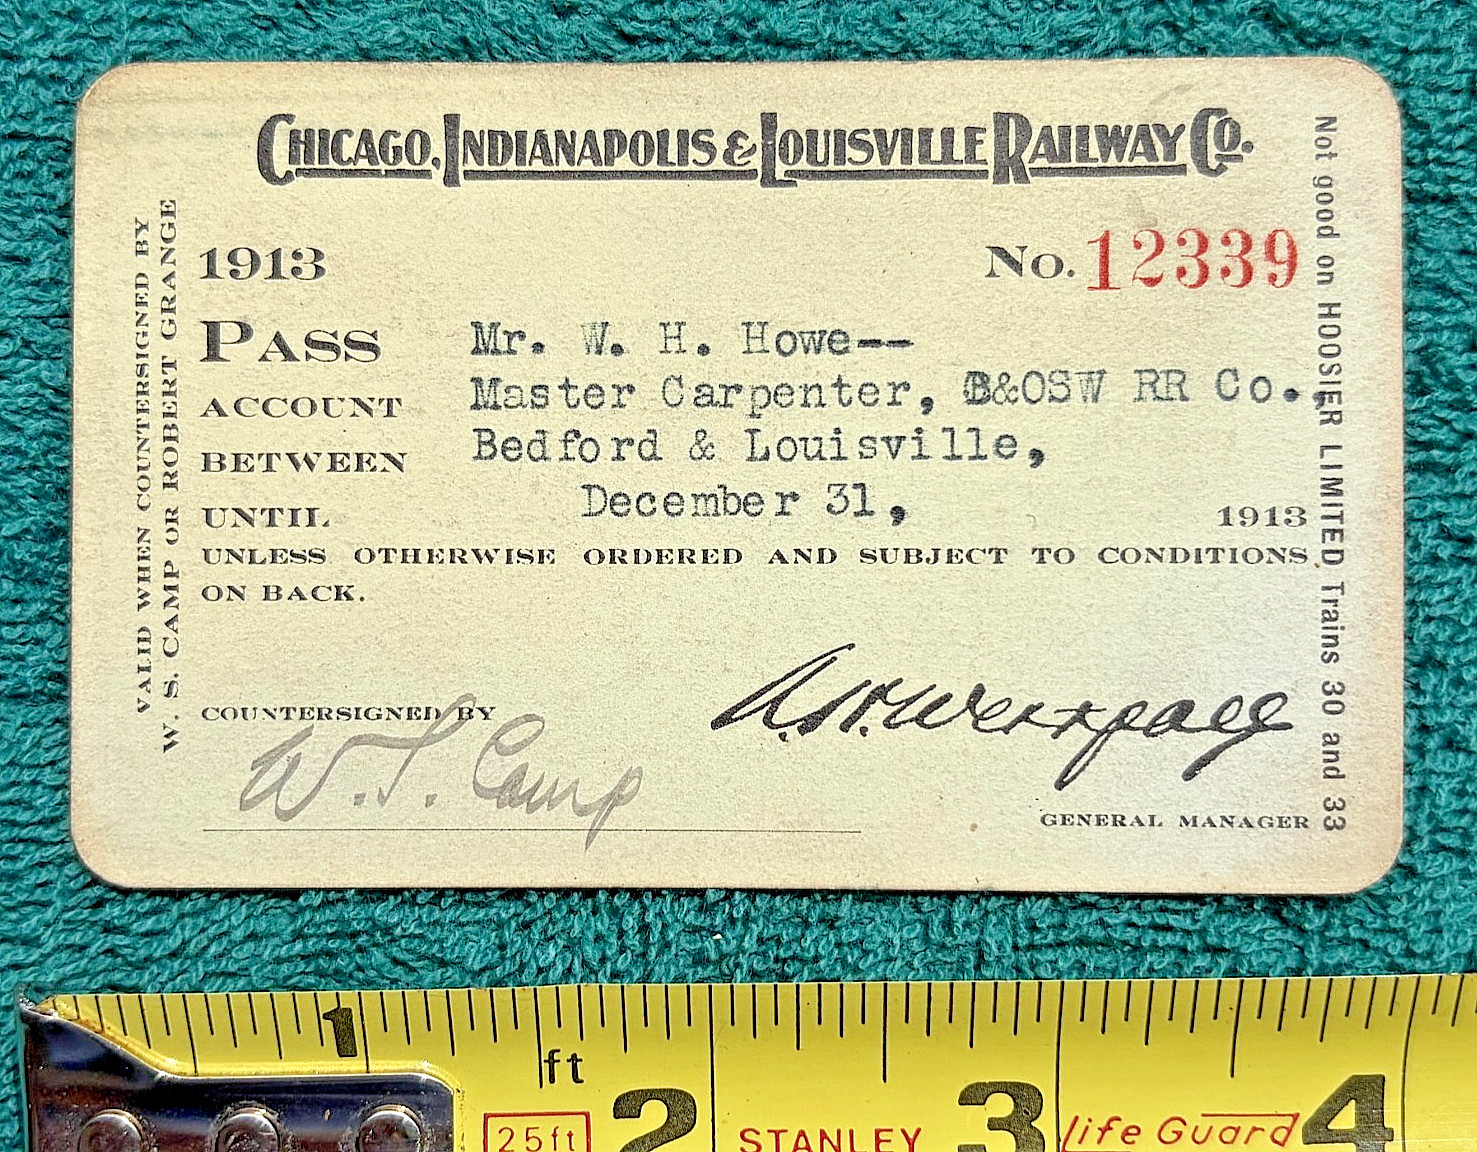 CHICAGO, INDIANAPOLIS & LOUISVILLE RAILWAY CO.
1913 No. 12339
PASS Mr. W. H. Howe--
ACCOUNT Master Carpenter, B&OSW RR Co.,
BETWEEN Bedford & Louisville,
UNTIL December 31, 1913
UNLESS OTHERWISE ORDERED AND SUBJECT TO CONDITIONS
ON BACK.
COUNTERSIGNED BY
W. S. Camp
GENERAL MANAGER
VALID WHEN COUNTERSIGNED BY
W. S. CAMP OR ROBERT GRANGE
Not good on HOOSIER LIMITED Trains 30 and 33
1 2 3 4
ft
25ft STANLEY life Guard